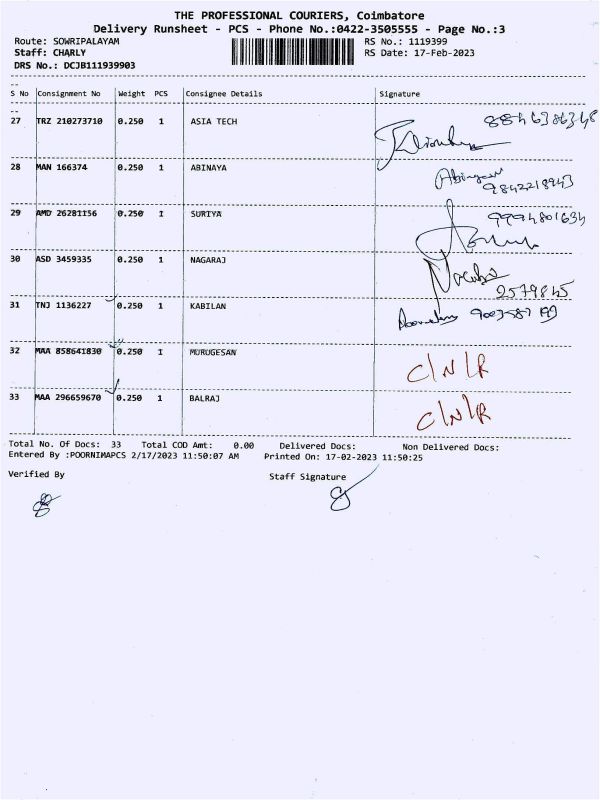 THE PROFESSIONAL COURIERS, Coimbatore
Delivery Runsheet - PCS - Phone No.:0422-3505555 - Page No.:3
Route: SOWRIPALAYAM RS No.: 1119399
Staff: CHARLY RS Date: 17-Feb-2023
DRS No.: DCJB111939903
S No Consignment No Weight PCS Consignee Details Signature
27 TRZ 210273710 0.250 1 ASIA TECH
28 MAN 166374 0.250 1 ABINAYA
9842218943
29 AMD 26281156 0.250 1 SURIYA 9994801634
30 ASD 3459335 0.250 1 NAGARAJ
2579845
31 TNJ 1136227 0.250 1 KABILAN
32 MAA 858641830 0.250 1 MURUGESAN C/N/R
33 MAA 296659670 0.250 1 BALRAJ C/N/R
Total No. Of Docs: 33 Total COD Amt: 0.00 Delivered Docs: Non Delivered Docs:
Entered By :POORNIMAPCS 2/17/2023 11:50:07 AM Printed On: 17-02-2023 11:50:25
Verified By Staff Signature